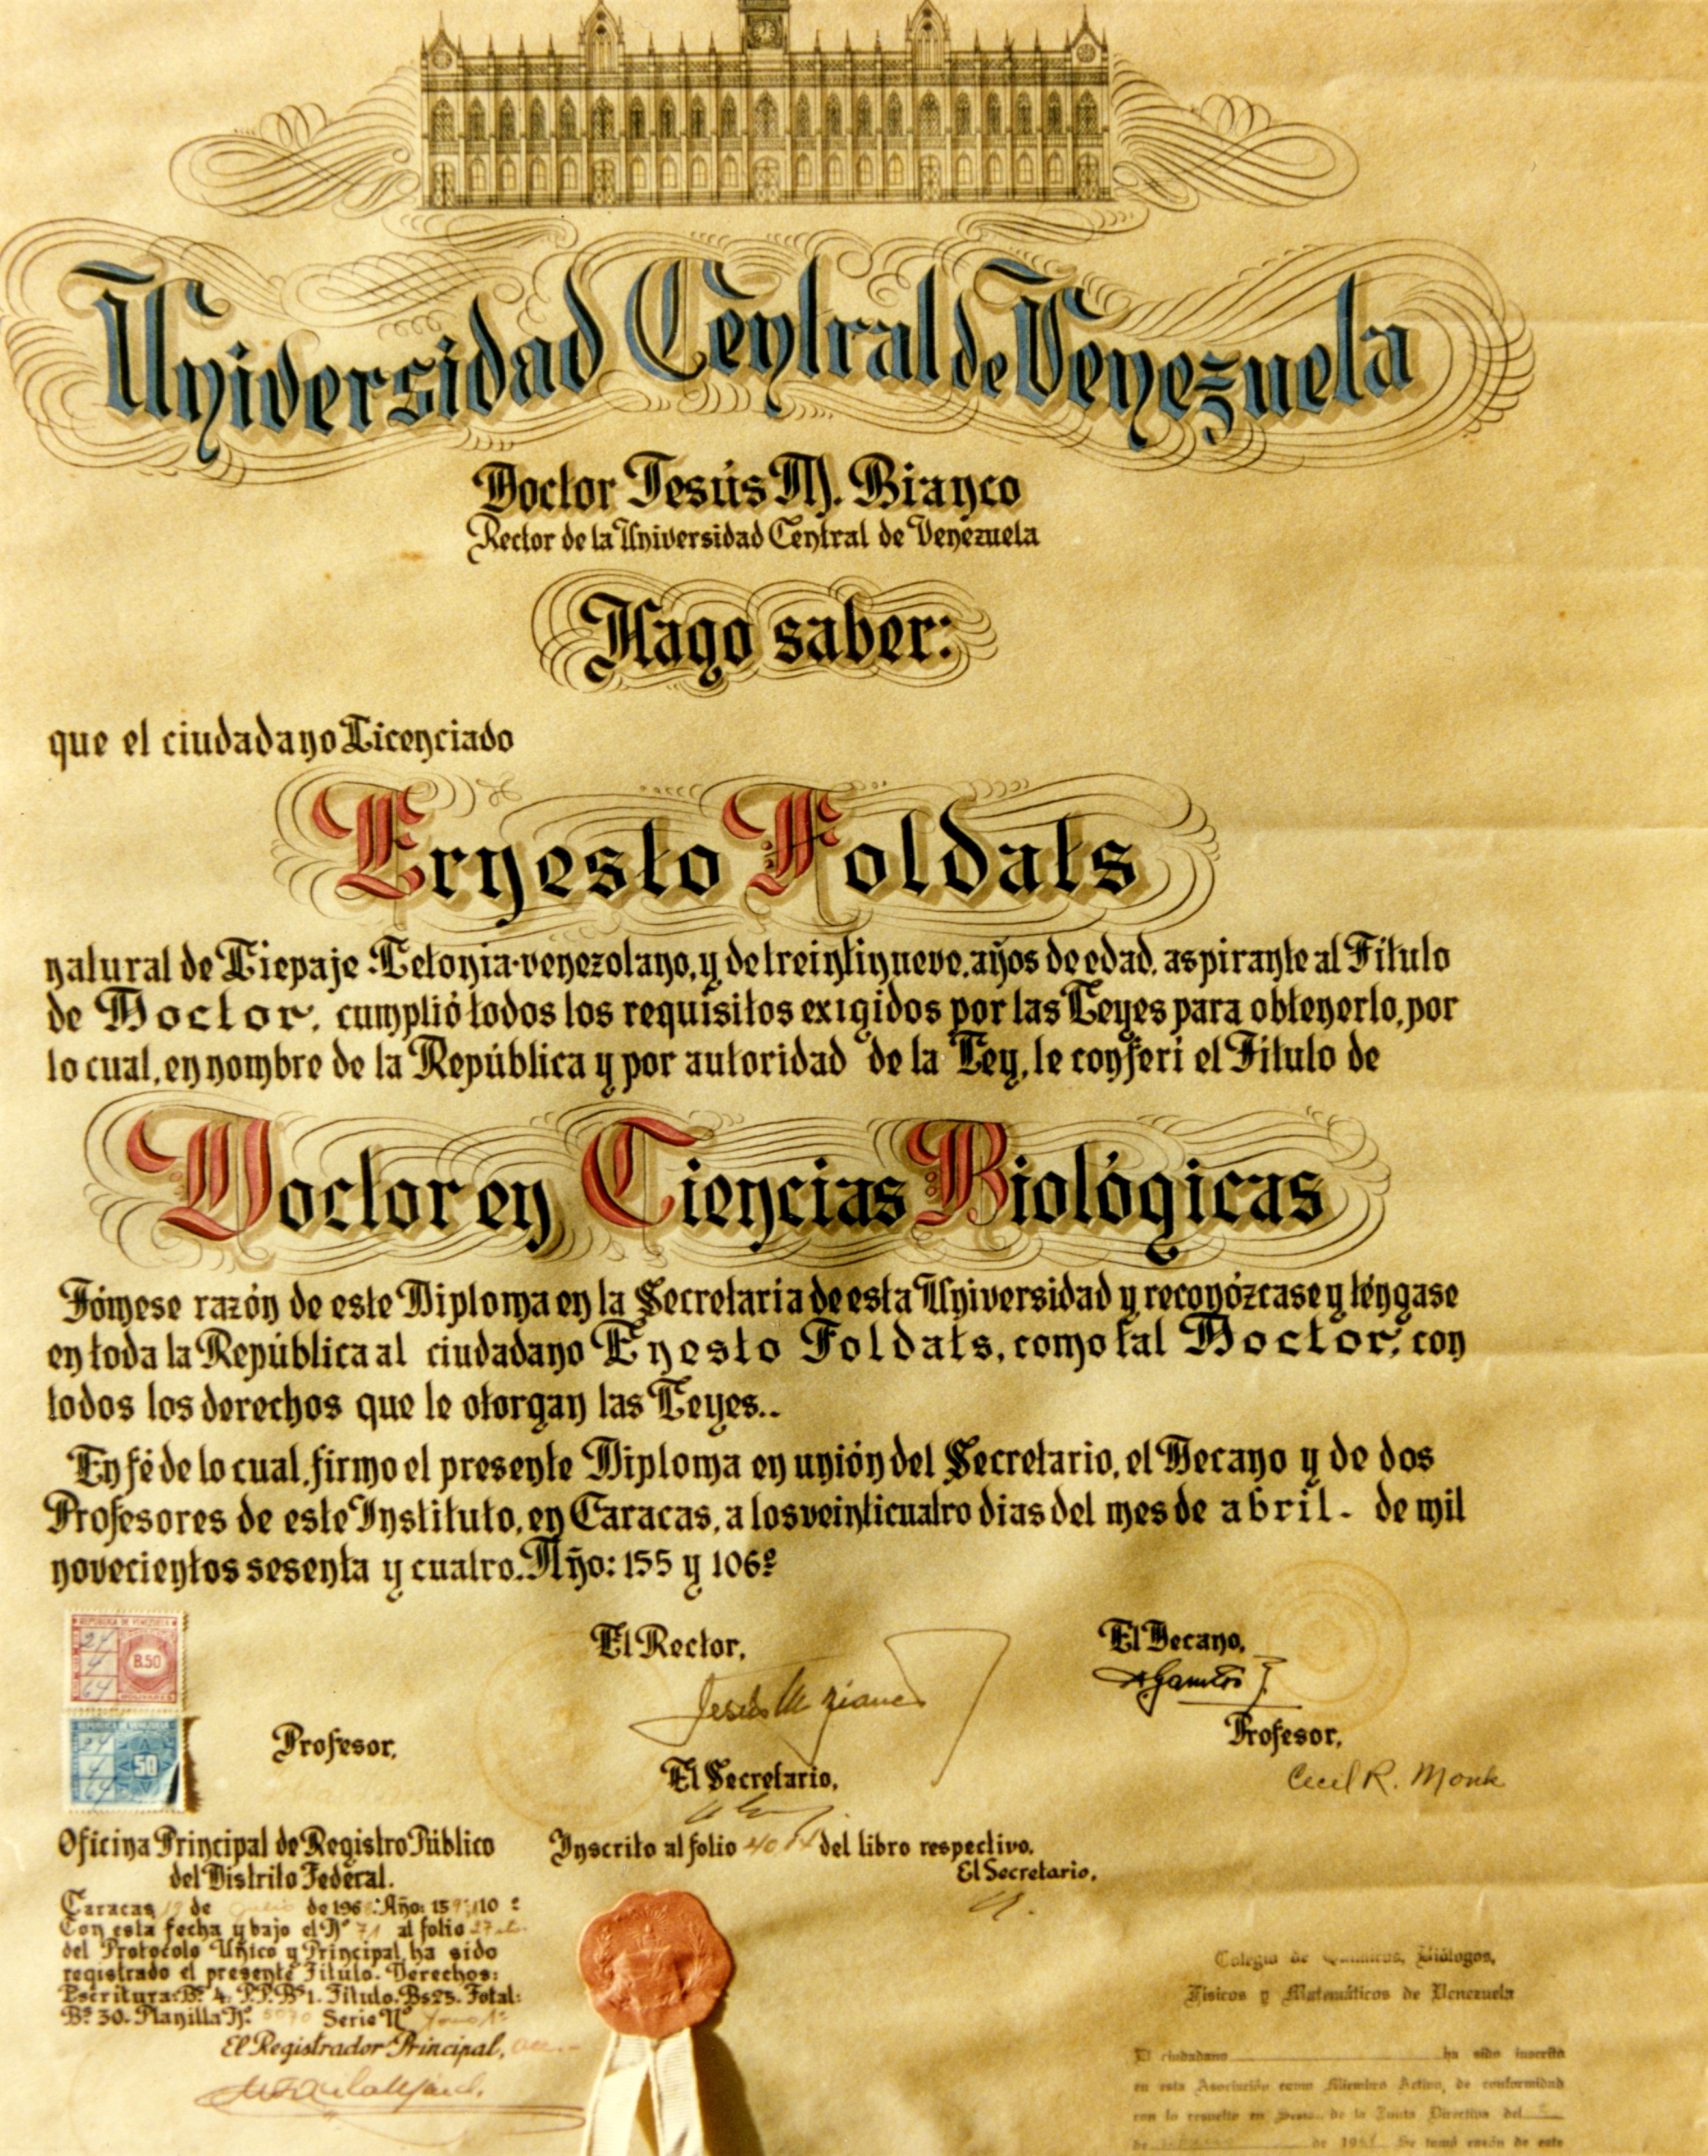 Universidad Central de Venezuela
Doctor Jesús M. Bianco
Rector de la Universidad Central de Venezuela
Hago saber:
que el ciudadano Licenciado
Ernesto Foldats
natural de Liepaje-Letonia-venezolano, y de treintinueve años de edad, aspirante al Título
de Doctor, cumplió todos los requisitos exigidos por las Leyes para obtenerlo, por
lo cual, en nombre de la República y por autoridad de la Ley, le conferí el Título de
Doctor en Ciencias Biológicas
Tómese razón de este Diploma en la Secretaria de esta Universidad y reconózcase y téngase
en toda la República al ciudadano Ernesto Foldats, como tal Doctor, con
todos los derechos que le otorgan las Leyes..
En fé de lo cual, firmo el presente Diploma en unión del Secretario, el Decano y de dos
Profesores de este Instituto, en Caracas, a los veinticuatro dias del mes de abril - de mil
novecientos sesenta y cuatro. Año: 155 y 106º
REPUBLICA DE VENEZUELA
24
4
64
B.50
BOLIVARES
REPUBLICA DE VENEZUELA
24
4
64
50
El Rector,
Jesús M Bianco
El Decano,
Profesor,
Profesor,
Cecil R. Monk
El Secretario,
Oficina Principal de Registro Público
del Distrito Federal.
Inscrito al folio del libro respectivo.
El Secretario,
Caracas, 19 de de 196 Año: 159º 110º
Con esta fecha y bajo el Nº 71 al folio 27
del Protocolo Unico y Principal, ha sido
registrado el presente Titulo. Derechos:
Escritura: Bs. 4. P.P. Bs 1. Titulo. Bs 25. Total:
Bs 30. Planilla Nº. Serie Nº
El Registrador Principal,
Colegio de Químicos, Biólogos,
Físicos y Matemáticos de Venezuela
El ciudadano ha sido inscrito
en esta Asociación como Miembro Activo, de conformidad
con lo resuelto en Sesión de la Junta Directiva del
de de 196 Se tomó razón de este